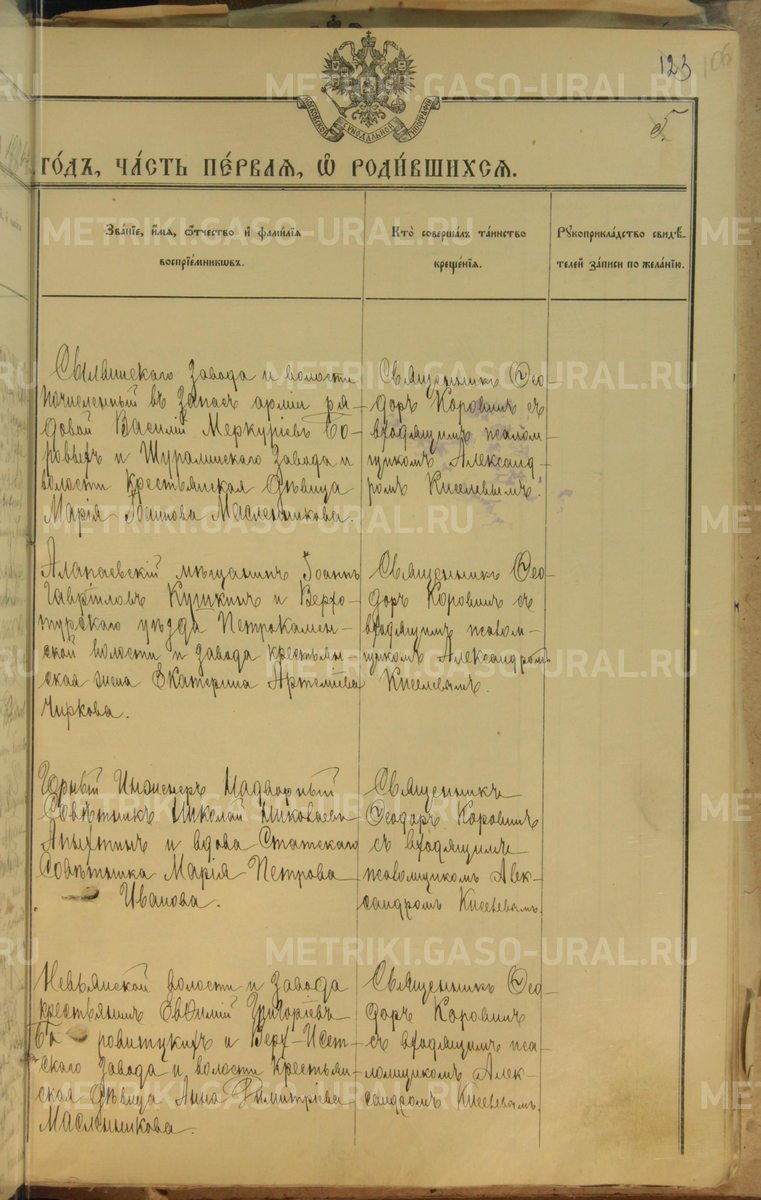 123
106
5
МОСКОВСКОЙ СѴНОДАЛЬНОЙ ТИПОГРАФІИ
ГО́ДЪ, ЧА́СТЬ ПЕ́РВАЯ, Ѡ҆ РОДИ́ВШИХСЯ.
Зва́нїе, и҆́мя, ѻ҆́тчество и҆ фами́лїя
воспрїе́мниковъ.
Кто̀ соверша́лъ та́инство
креще́нїя.
Рꙋкоприкла́дство свидѣ́-
телей за́писи по жела́нїю.
Сылвинскаго Завода и волости
почисленный въ Запасъ армiи ря-
довой Василiй Меркурiевъ Бо-
ровыхъ и Шуралинскаго Завода и
волости Крестьянская Дѣвица
Марiя Iоаннова Масленникова.
Священникъ Ѳео-
доръ Коровинъ съ
входящимъ псалом-
щикомъ Александ-
ромъ Киселевымъ.
Алапаевскiй мѣщанинъ Iоаннъ
Гаврiиловъ Кушкинъ и Верхо-
турскаго уѣзда Петрокамен-
ской волости и завода крестьян-
ская жена Екатерина Артемiева
Чиркова.
Священникъ Ѳео-
доръ Коровинъ съ
входящимъ псалом-
щикомъ Александромъ
Киселевымъ.
Горный Инженеръ Надворный
Совѣтникъ Николай Николаевъ
и вдова Статскаго
Совѣтника Марiя Петрова
Иванова.
Священникъ
Ѳеодоръ Коровинъ
съ входящимъ
псаломщикомъ Алек-
сандромъ Киселевымъ.
Невьянской волости и Завода
крестьянинъ Евѳимiй Григорiевъ
и Верх-Исет-
скаго Завода и волости Крестьян-
ская Дѣвица Анна Димитрiева
Масленникова.
Священникъ Ѳео-
доръ Коровинъ
съ входящимъ пса-
ломщикомъ Алек-
сандромъ Киселевымъ.
METRIKI.GASO-URAL.RU